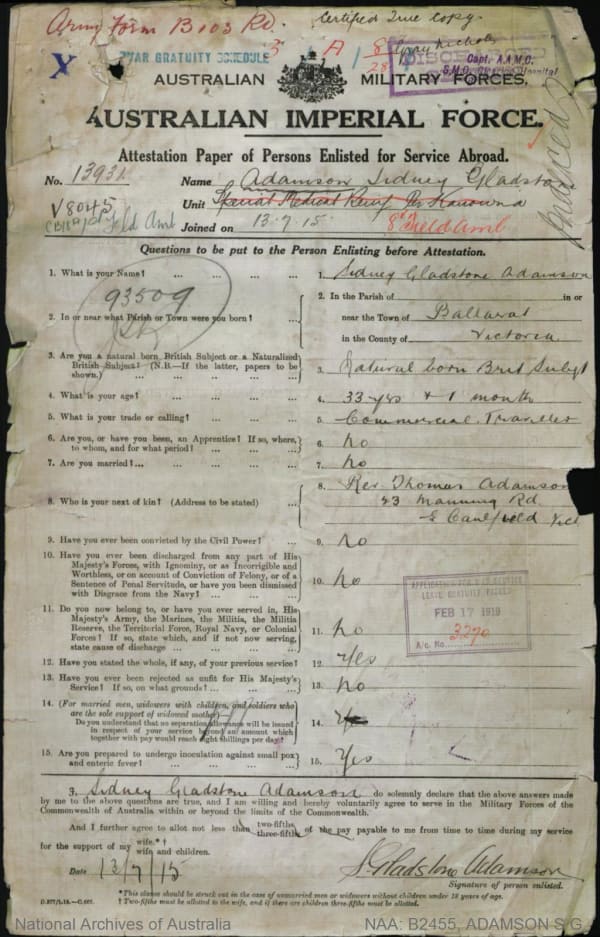 Army Form B103 Rd.
Certified True Copy.
WAR GRATUITY SCHEDULE
3 A 18
28
X
DISCHARGED
Capt. A.A.M.C.
AUSTRALIAN MILITARY FORCES.
AUSTRALIAN IMPERIAL FORCE.
Attestation Paper of Persons Enlisted for Service Abroad.
No. Name Adamson Sidney Gladstone
V8045 Unit Special Medical Reinf Per Kanowna
Joined on 13.7.15 8th Field Amb
Questions to be put to the Person Enlisting before Attestation.
1. What is your Name? ... ... ... ... 1. Sidney Gladstone Adamson
93509
2. In or near what Parish or Town were you born? ...
2. In the Parish of in or
near the Town of Ballarat
in the County of Victoria
3. Are you a natural born British Subject or a Naturalized
British Subject? (N.B.—If the latter, papers to be
shown.) ... ... ... ...
3. Natural born Brit Subjt
4. What is your age? ... ... ... ... 4. 33 yrs + 1 months
5. What is your trade or calling? ... ... ... 5. Commercial Traveller
6. Are you, or have you been, an Apprentice? If so, where,
to whom, and for what period? ... ... ...
6. No
7. Are you married?... ... ... ... ... 7. No
8. Who is your next of kin? (Address to be stated) ...
8. Rev. Thomas Adamson
23 Manning Rd
E Caulfield Vict
9. Have you ever been convicted by the Civil Power? ... 9. No
10. Have you ever been discharged from any part of His
Majesty's Forces, with Ignominy, or as Incorrigible and
Worthless, or on account of Conviction of Felony, or of a
Sentence of Penal Servitude, or have you been dismissed
with Disgrace from the Navy? ... ... ...
10. No
11. Do you now belong to, or have you ever served in, His
Majesty's Army, the Marines, the Militia, the Militia
Reserve, the Territorial Force, Royal Navy, or Colonial
Forces? If so, state which, and if not now serving,
state cause of discharge ... ... ...
11. No
LEAVE GRATUITY
FEB 17 1919
A/c. No. 3290
12. Have you stated the whole, if any, of your previous service? 12. Yes
13. Have you ever been rejected as unfit for His Majesty's
Service? If so, on what grounds? ... ... ...
13. No
14. (For married men, widowers with children, and soldiers who
are the sole support of widowed mother)—
Do you understand that no separation allowance will be issued
in respect of your service beyond an amount which
together with pay would reach eight shillings per day?
14.
15. Are you prepared to undergo inoculation against small pox
and enteric fever? ... ... ... ...
15. Yes
I, Sidney Gladstone Adamson do solemnly declare that the above answers made
by me to the above questions are true, and I am willing and hereby voluntarily agree to serve in the Military Forces of the
Commonwealth of Australia within or beyond the limits of the Commonwealth.
And I further agree to allot not less than two-fifths three-fifths of the pay payable to me from time to time during my service
for the support of my wife.*†
wife and children.
Date 13/7/15 S. Gladstone Adamson
Signature of person enlisted.
*This clause should be struck out in the case of unmarried men or widowers without children under 18 years of age.
† Two-fifths must be allotted to the wife, and if there are children three-fifths must be allotted.
National Archives of Australia NAA: B2455, ADAMSON S G